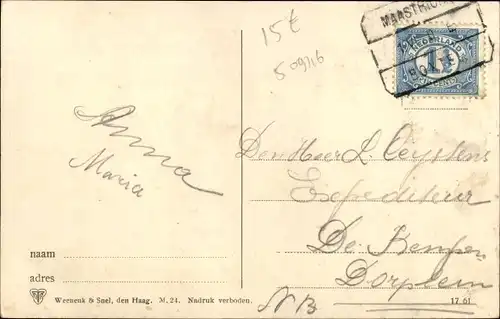 15€
50916
MAASTRICHT
NEDERLAND
1½
Anna
Maria
Den Heer L. Ceystens
Expediteur
De Kempen
Dorplein
NB
naam
adres
Weenenk & Snel, den Haag. M. 24. Nadruk verboden.
17 61